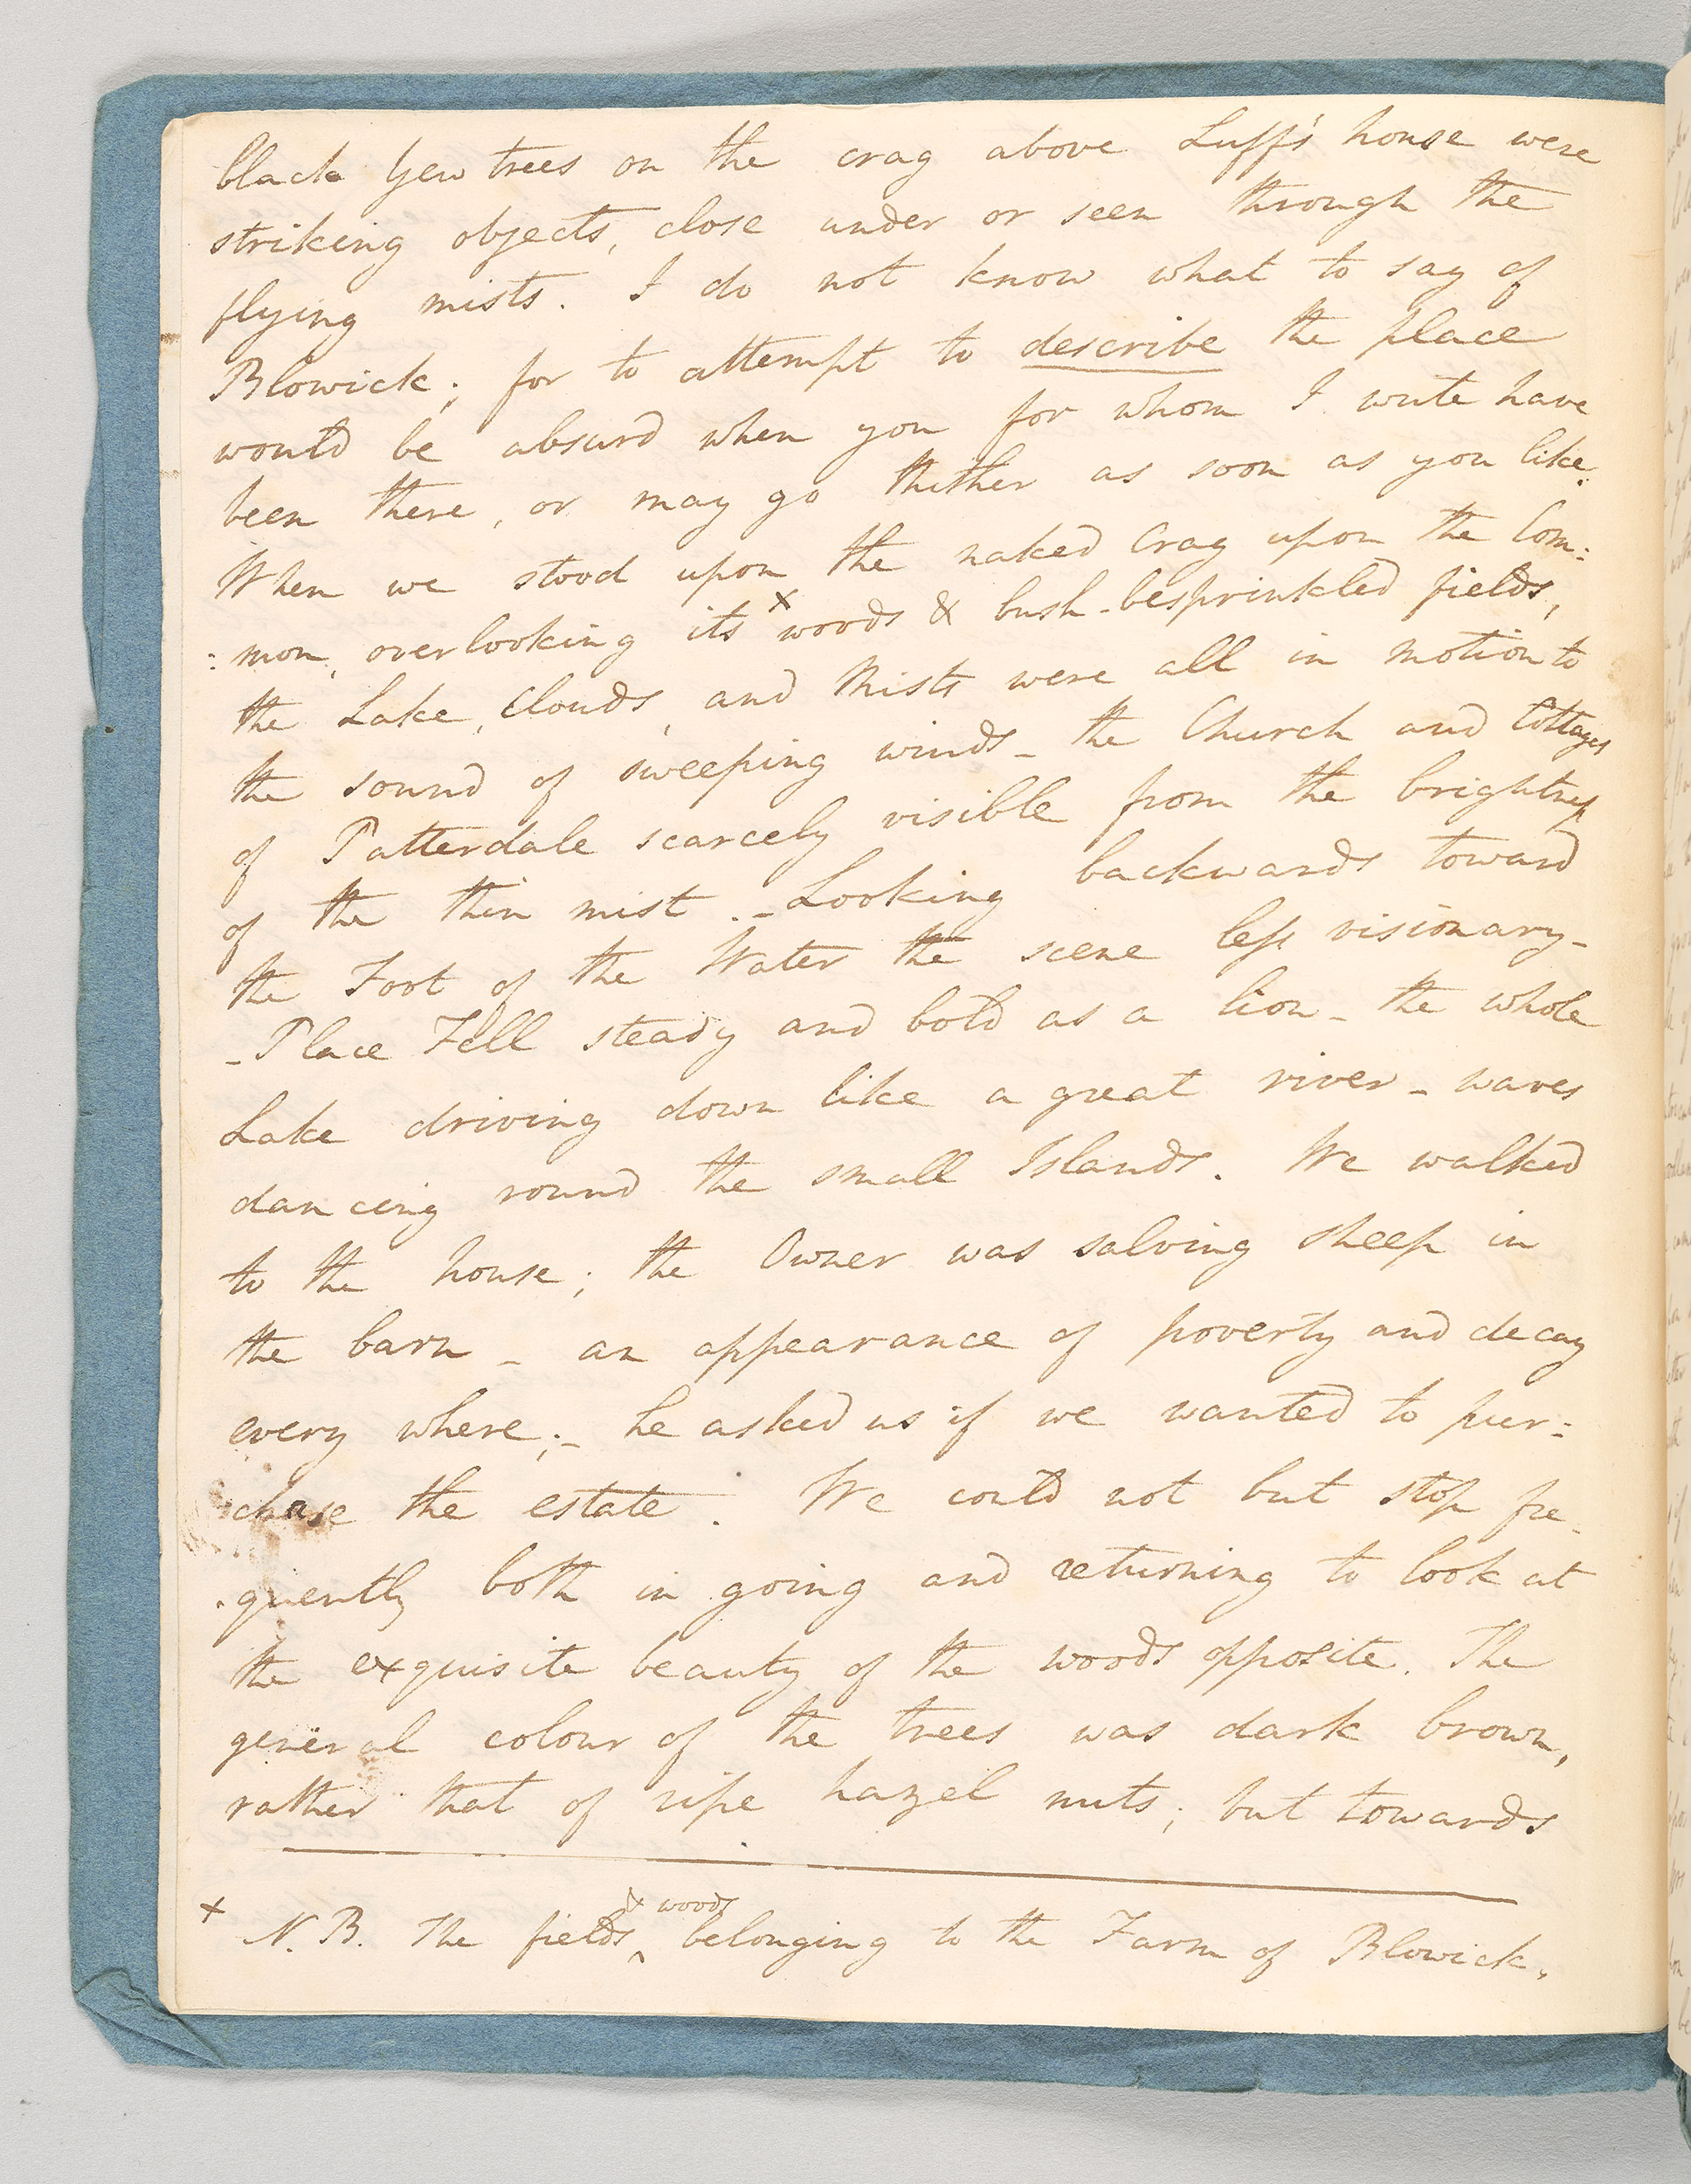 black Yew trees on the crag above Luff's house were
striking objects, close under or seen through the
flying mists. I do not know what to say of
Blowick; for to attempt to describe the place
would be absurd when you for whom I write have
been there, or may go thither as soon as you like.
When we stood upon the naked Crag upon the Com:
: mon, overlooking its x woods & bush-besprinkled fields,
the Lake, Clouds, and Mists were all in motion to
the sound of sweeping winds - the Church and Cottages
of Patterdale scarcely visible from the brightness
of the thin mist. - Looking backwards toward
the Foot of the Water the scene less visionary -
- Place Fell steady and bold as a lion - the whole
Lake driving down like a great river - waves
dancing round the small Islands. We walked
to the house; the Owner was salving sheep in
the barn - an appearance of poverty and decay
every where; - he asked us if we wanted to pur:
chase the estate. We could not but stop fre-
-quently both in going and returning to look at
the exquisite beauty of the woods opposite. The
general colour of the trees was dark brown,
rather that of ripe hazel nuts; but towards
x N.B. The fields & woods belonging to the Farm of Blowick.